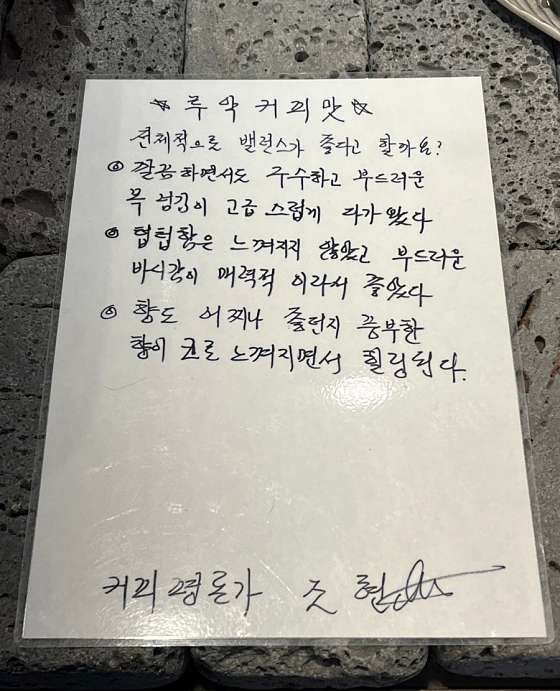 ☆ 루왁커피맛 ☆
전체적으로 밸런스가 좋다고 할까요?
깔끔하면서도 구수하고 부드러운
목 넘김이 고급 스럽게 다가 왔다
텁텁함은 느껴지지 않았고 부드러운
바시감이 매력적 이라서 좋았다
향도 어찌나 좋던지 풍부한
향이 코로 느껴지면서 힐링된다.
커피평론가 조 현